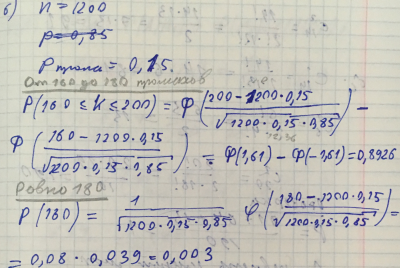 б) n = 1200
p = 0,85
P промаха = 0,15.
От 160 до 180 промахов
P(160 ≤ K ≤ 200) = Φ(200 - 1200·0,15 / √1200·0,15·0,85) -
Φ(160 - 1200·0,15 / √1200·0,15·0,85) = Φ(1,61) - Φ(-1,61) = 0,8926
Ровно 180
P(180) = 1 / √1200·0,15·0,85 φ(180 - 1200·0,15 / √1200·0,15·0,85) =
= 0,08 · 0,039 = 0,003